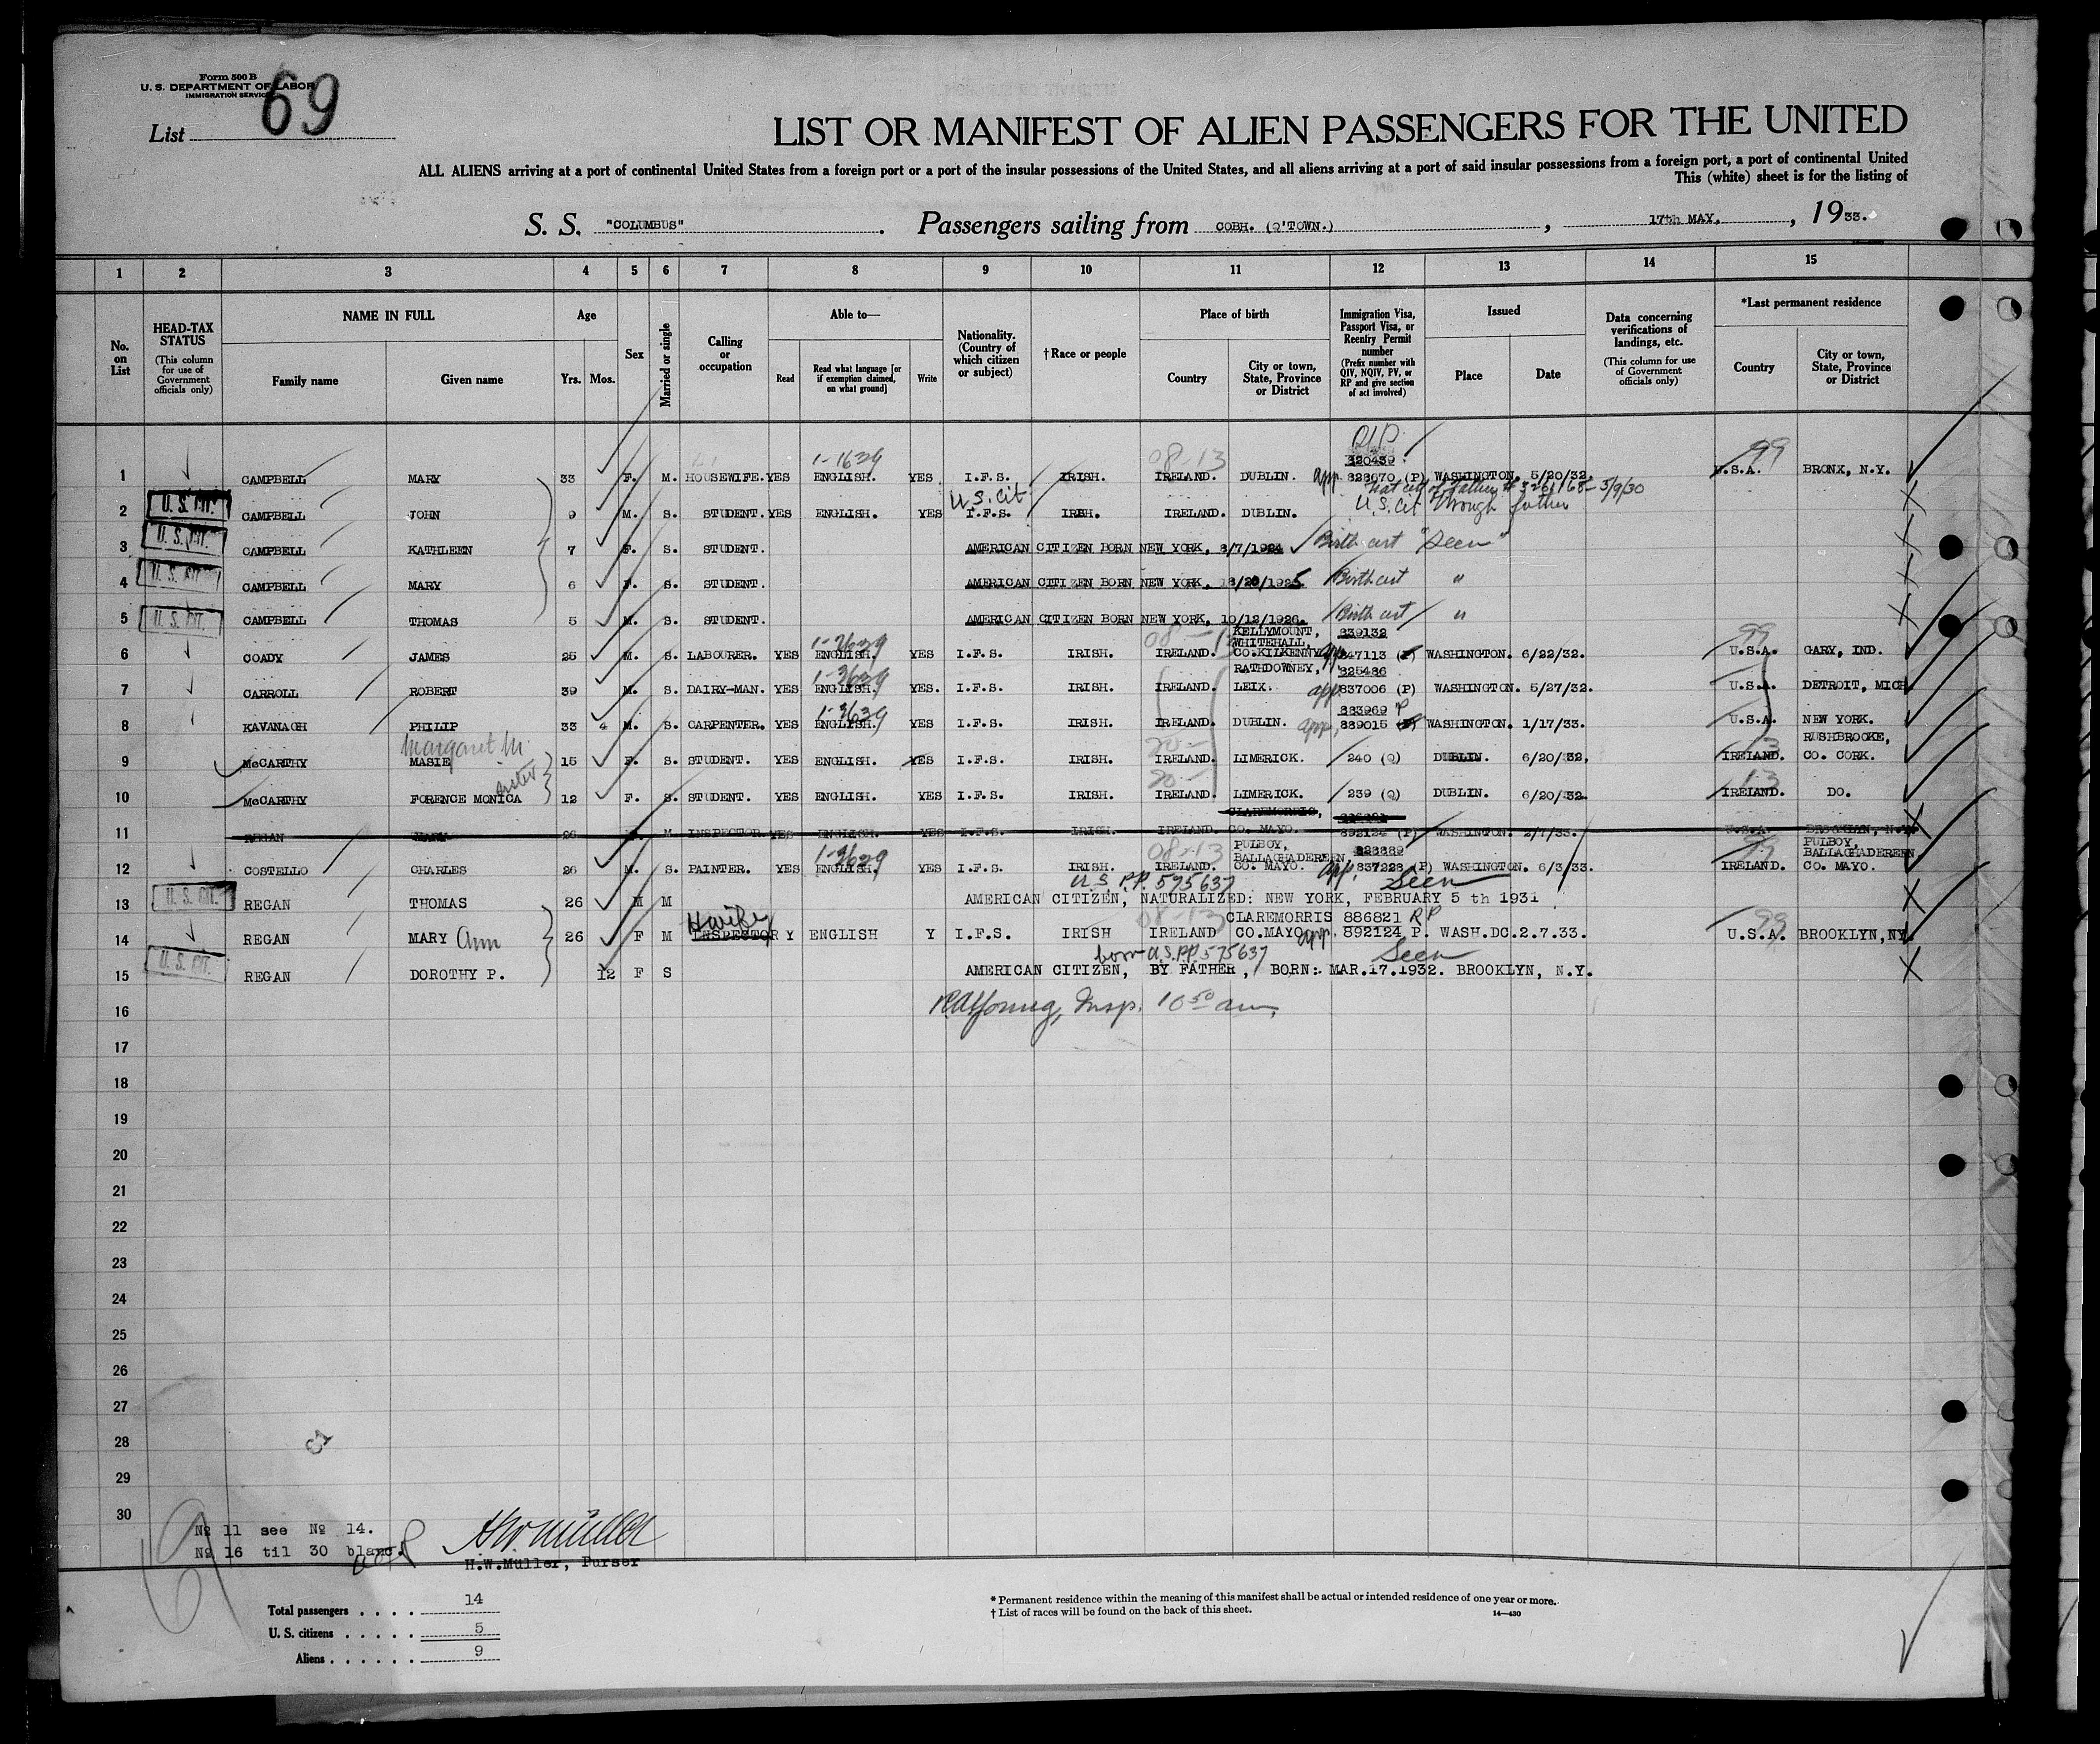 Form 500 B
U. S. DEPARTMENT OF LABOR
IMMIGRATION SERVICE
List 69
LIST OR MANIFEST OF ALIEN PASSENGERS FOR THE UNITED
ALL ALIENS arriving at a port of continental United States from a foreign port or a port of the insular possessions of the United States, and all aliens arriving at a port of said insular possessions from a foreign port, a port of continental United
This (white) sheet is for the listing of
S. S. "COLUMBUS". Passengers sailing from COBH. (Q'TOWN.), 17th MAY, 1933.
1 2 3 4 5 6 7 8 9 10 11 12 13 14 15
No. on List
HEAD-TAX STATUS (This column for use of Government officials only)
NAME IN FULL Family name Given name
Age Yrs. Mos.
Sex
Married or single
Calling or occupation
Able to— Read Read what language [or if exemption claimed, on what ground] Write
Nationality. (Country of which citizen or subject)
†Race or people
Place of birth Country City or town, State, Province or District
Immigration Visa, Passport Visa, or Reentry Permit number (Prefix number with QIV, NQIV, PV, or RP and give section of act involved)
Issued Place Date
Data concerning verifications of landings, etc. (This column for use of Government officials only)
*Last permanent residence Country City or town, State, Province or District
1-1629 08-13 320439 99
1 CAMPBELL MARY 33 F. M. HOUSEWIFE. YES ENGLISH. YES I.F.S. IRISH. IRELAND. DUBLIN. app. 828670 (P) WASHINGTON. 5/20/32. U.S.A. BRONX, N.Y.
U.S. Cit nat cert of father # 3261168 - 5/9/30
U.S. Cit through father
2 U.S. CIT. CAMPBELL JOHN 9 M. S. STUDENT. YES ENGLISH. YES I.F.S. IRISH. IRELAND. DUBLIN.
3 U.S. CIT. CAMPBELL KATHLEEN 7 F. S. STUDENT. AMERICAN CITIZEN BORN NEW YORK, 8/7/1924 Birth cert "Seen"
4 U.S. CIT. CAMPBELL MARY 6 F. S. STUDENT. AMERICAN CITIZEN BORN NEW YORK, 18/20/1925 Birth cert "
5 U.S. CIT. CAMPBELL THOMAS 5 M. S. STUDENT. AMERICAN CITIZEN BORN NEW YORK, 10/12/1926. Birth cert "
1-3629 08-13 KELLYMOUNT, WHITEHALL, 839132 99
6 COADY JAMES 25 M. S. LABOURER. YES ENGLISH. YES I.F.S. IRISH. IRELAND. CO.KILKENNY app 847113 (P) WASHINGTON. 6/22/32. U.S.A. GARY, IND.
1-3629 RATHDOWNEY, 825486
7 CARROLL ROBERT 39 M. S. DAIRY-MAN. YES ENGLISH. YES. I.F.S. IRISH. IRELAND. LEIX. app 837006 (P) WASHINGTON. 5/27/32. U.S.A. DETROIT, MICH
1-3629 883969 P
8 KAVANAGH PHILIP 33 4 M. S. CARPENTER. YES ENGLISH. YES I.F.S. IRISH. IRELAND. DUBLIN. app. 889015 WASHINGTON. 1/17/33. U.S.A. NEW YORK.
Margaret M. 20- 13 RUSHBROOKE,
9 McCARTHY MASIE 15 F. S. STUDENT. YES ENGLISH. YES I.F.S. IRISH. IRELAND. LIMERICK. 240 (Q) DUBLIN. 6/20/32. IRELAND. CO. CORK.
sister 20- 13
10 McCARTHY FORENCE MONICA 12 F. S. STUDENT. YES ENGLISH. YES I.F.S. IRISH. IRELAND. LIMERICK. 239 (Q) DUBLIN. 6/20/32. IRELAND. DO.
CLAREMORRIS,
11 REGAN 26 M INSPECTOR. YES ENGLISH. YES I.F.S. IRISH. IRELAND. CO. MAYO. 892124 (P) WASHINGTON. 2/7/33. U.S.A. BROOKLYN, N.Y.
1-3629 08-13 PULBOY, BALLAGHADEREEN 99 PULBOY, BALLAGHADEREEN
12 COSTELLO CHARLES 26 M. S. PAINTER. YES ENGLISH. YES I.F.S. IRISH. IRELAND. CO. MAYO. app. 837228 (P) WASHINGTON. 6/3/33. IRELAND. CO. MAYO.
U.S. P.P. 575637 Seen
13 U.S. CIT. REGAN THOMAS 26 M M AMERICAN CITIZEN, NATURALIZED: NEW YORK, FEBRUARY 5 th 1931
Hwife 08-13 CLAREMORRIS 886821 RP 99
14 REGAN MARY Ann 26 F M INSPECTOR Y ENGLISH Y I.F.S. IRISH IRELAND CO.MAYO app. 892124 P. WASH.DC. 2.7.33. U.S.A. BROOKLYN,NY.
born U.S.P.P. 575637 Seen
15 U.S. CIT. REGAN DOROTHY P. 12 F S AMERICAN CITIZEN, BY FATHER, BORN: MAR.17.1932. BROOKLYN, N.Y.
16 Insp. 10 50 am,
17
18
19
20
21
22
23
24
25
26
27
28
29
30
№ 11 see № 14.
№ 16 til 30 blanc.
H.W.Müller
H.W.Müller, Purser
Total passengers . . . . 14
U. S. citizens . . . . . 5
Aliens . . . . . . 9
* Permanent residence within the meaning of this manifest shall be actual or intended residence of one year or more.
† List of races will be found on the back of this sheet.
14—430